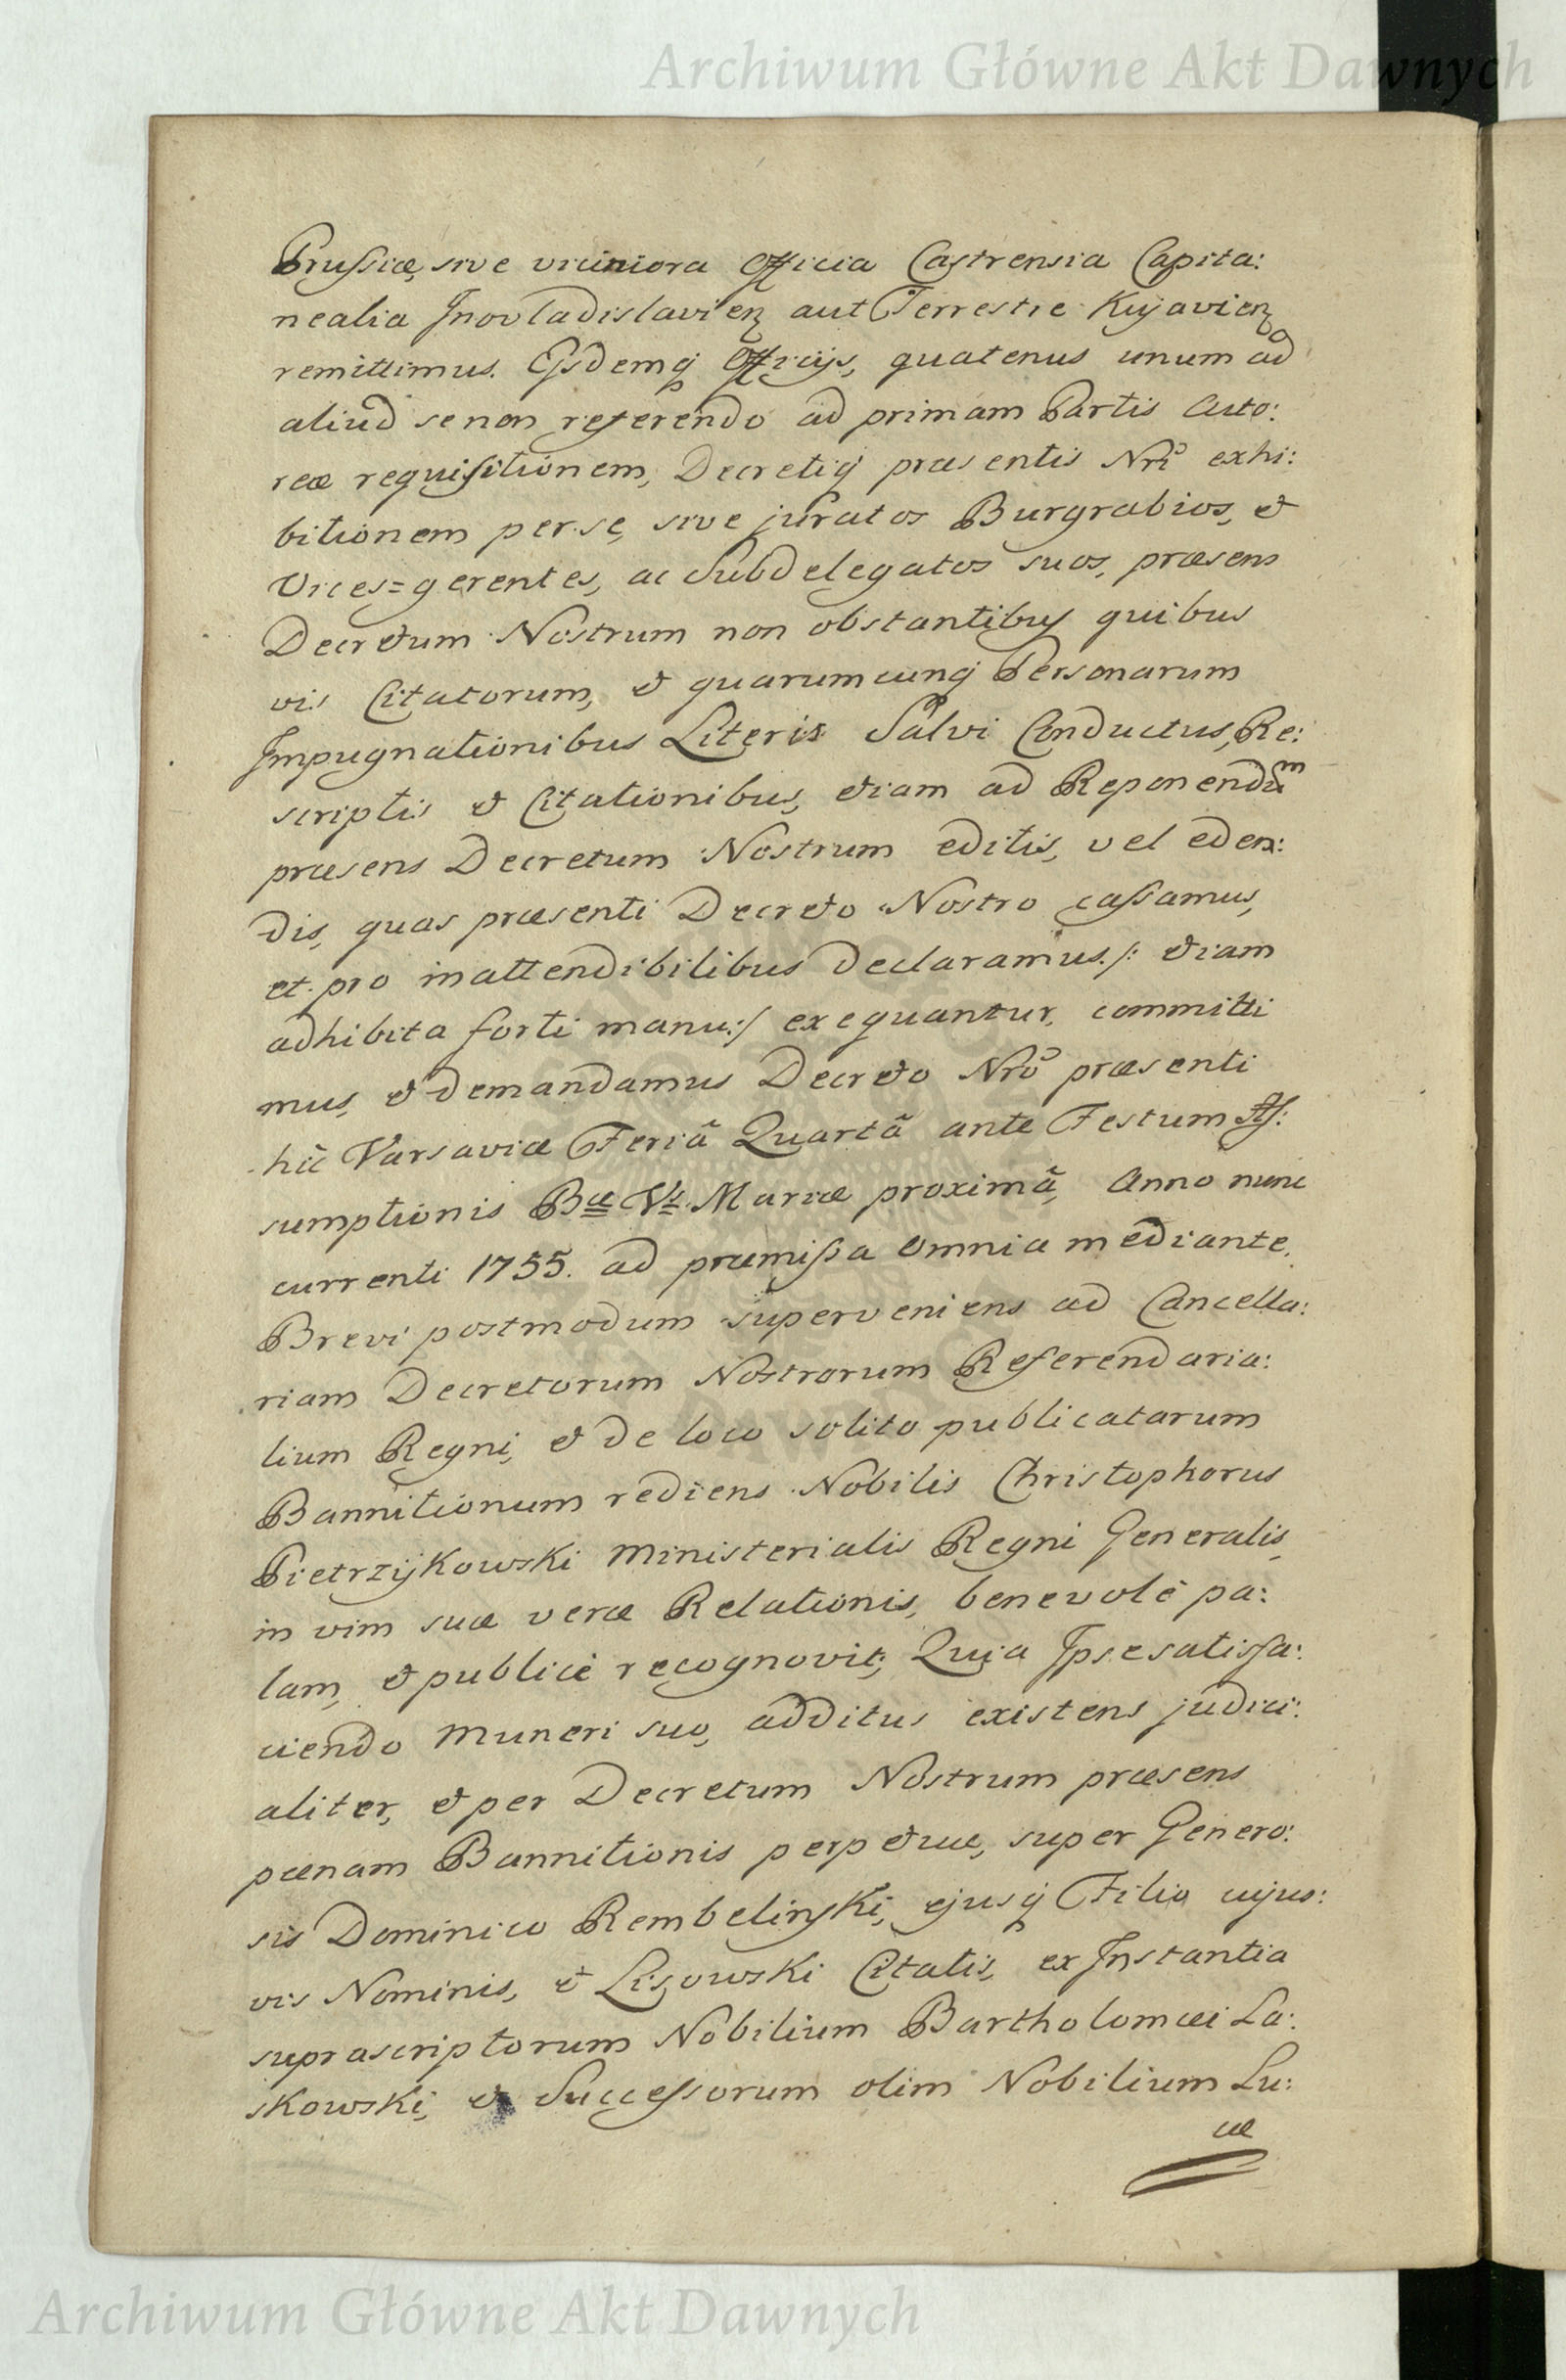 Archiwum Główne Akt Dawnych
Prussiæ, sive viciniora Officia Castrensia Capita:
nealia Jnovladislavieꝫ aut Terrestre Kujavieꝫ
remittimus. Ejsdemq́ Officijs, quatenus unum ad
aliud se non referendo ad primam Partis Acto:
reæ requisitionem, Decretiq́ præsentis Nri exhi:
bitionem per se, sive juratos Burgrabios, et
Vices=gerentes, ac Subdelegatos suos, præsens
Decretum Nostrum non obstantibus quibus
vis Citatorum, et quarumcunq́ Personarum
Jmpugnationibus Literis Salvi Conductus, Re:
scriptis et Citationibus, etiam ad Reponendum
præsens Decretum Nostrum editis, vel eden:
dis, quas præsenti Decreto Nostro cassamus,
et pro inattendibilibus declaramus. /: etiam
adhibita forti manu :/ exequantur, committi
mus, et demandamus Decreto Nrō præsenti
hic Varsaviæ Feriâ Quartâ ante Festum Ass:
sumptionis Bæ Vs Mariæ proximâ, Anno nunc
currenti 1755. ad præmissa omnia mediante,
Brevi postmodum superveniens ad Cancella:
riam Decretorum Nostrorum Referendaria:
lium Regni, et de loco solito publicatarum
Bannitionum rediens Nobilis Christophorus
Pietrzÿkowski Ministerialis Regni Generalis,
in vim suæ veræ Relationis, benevolè pa:
lam, et publicè recognovit; Quia Jpse satisfa:
ciendo Muneri suo, additus existens judici:
aliter, et per Decretum Nostrum præsens
pænam Bannitionis perpetuæ, super Genero:
sis Dominico Rembelinski, ejusq́ Filio cujus:
vis Nominis, et Lisowski Citatis, ex Jnstantia
suprascriptorum Nobilium Bartholomæi La:
skowski, et Successorum olim Nobilium Lu:
cæ
Archiwum Główne Akt Dawnych